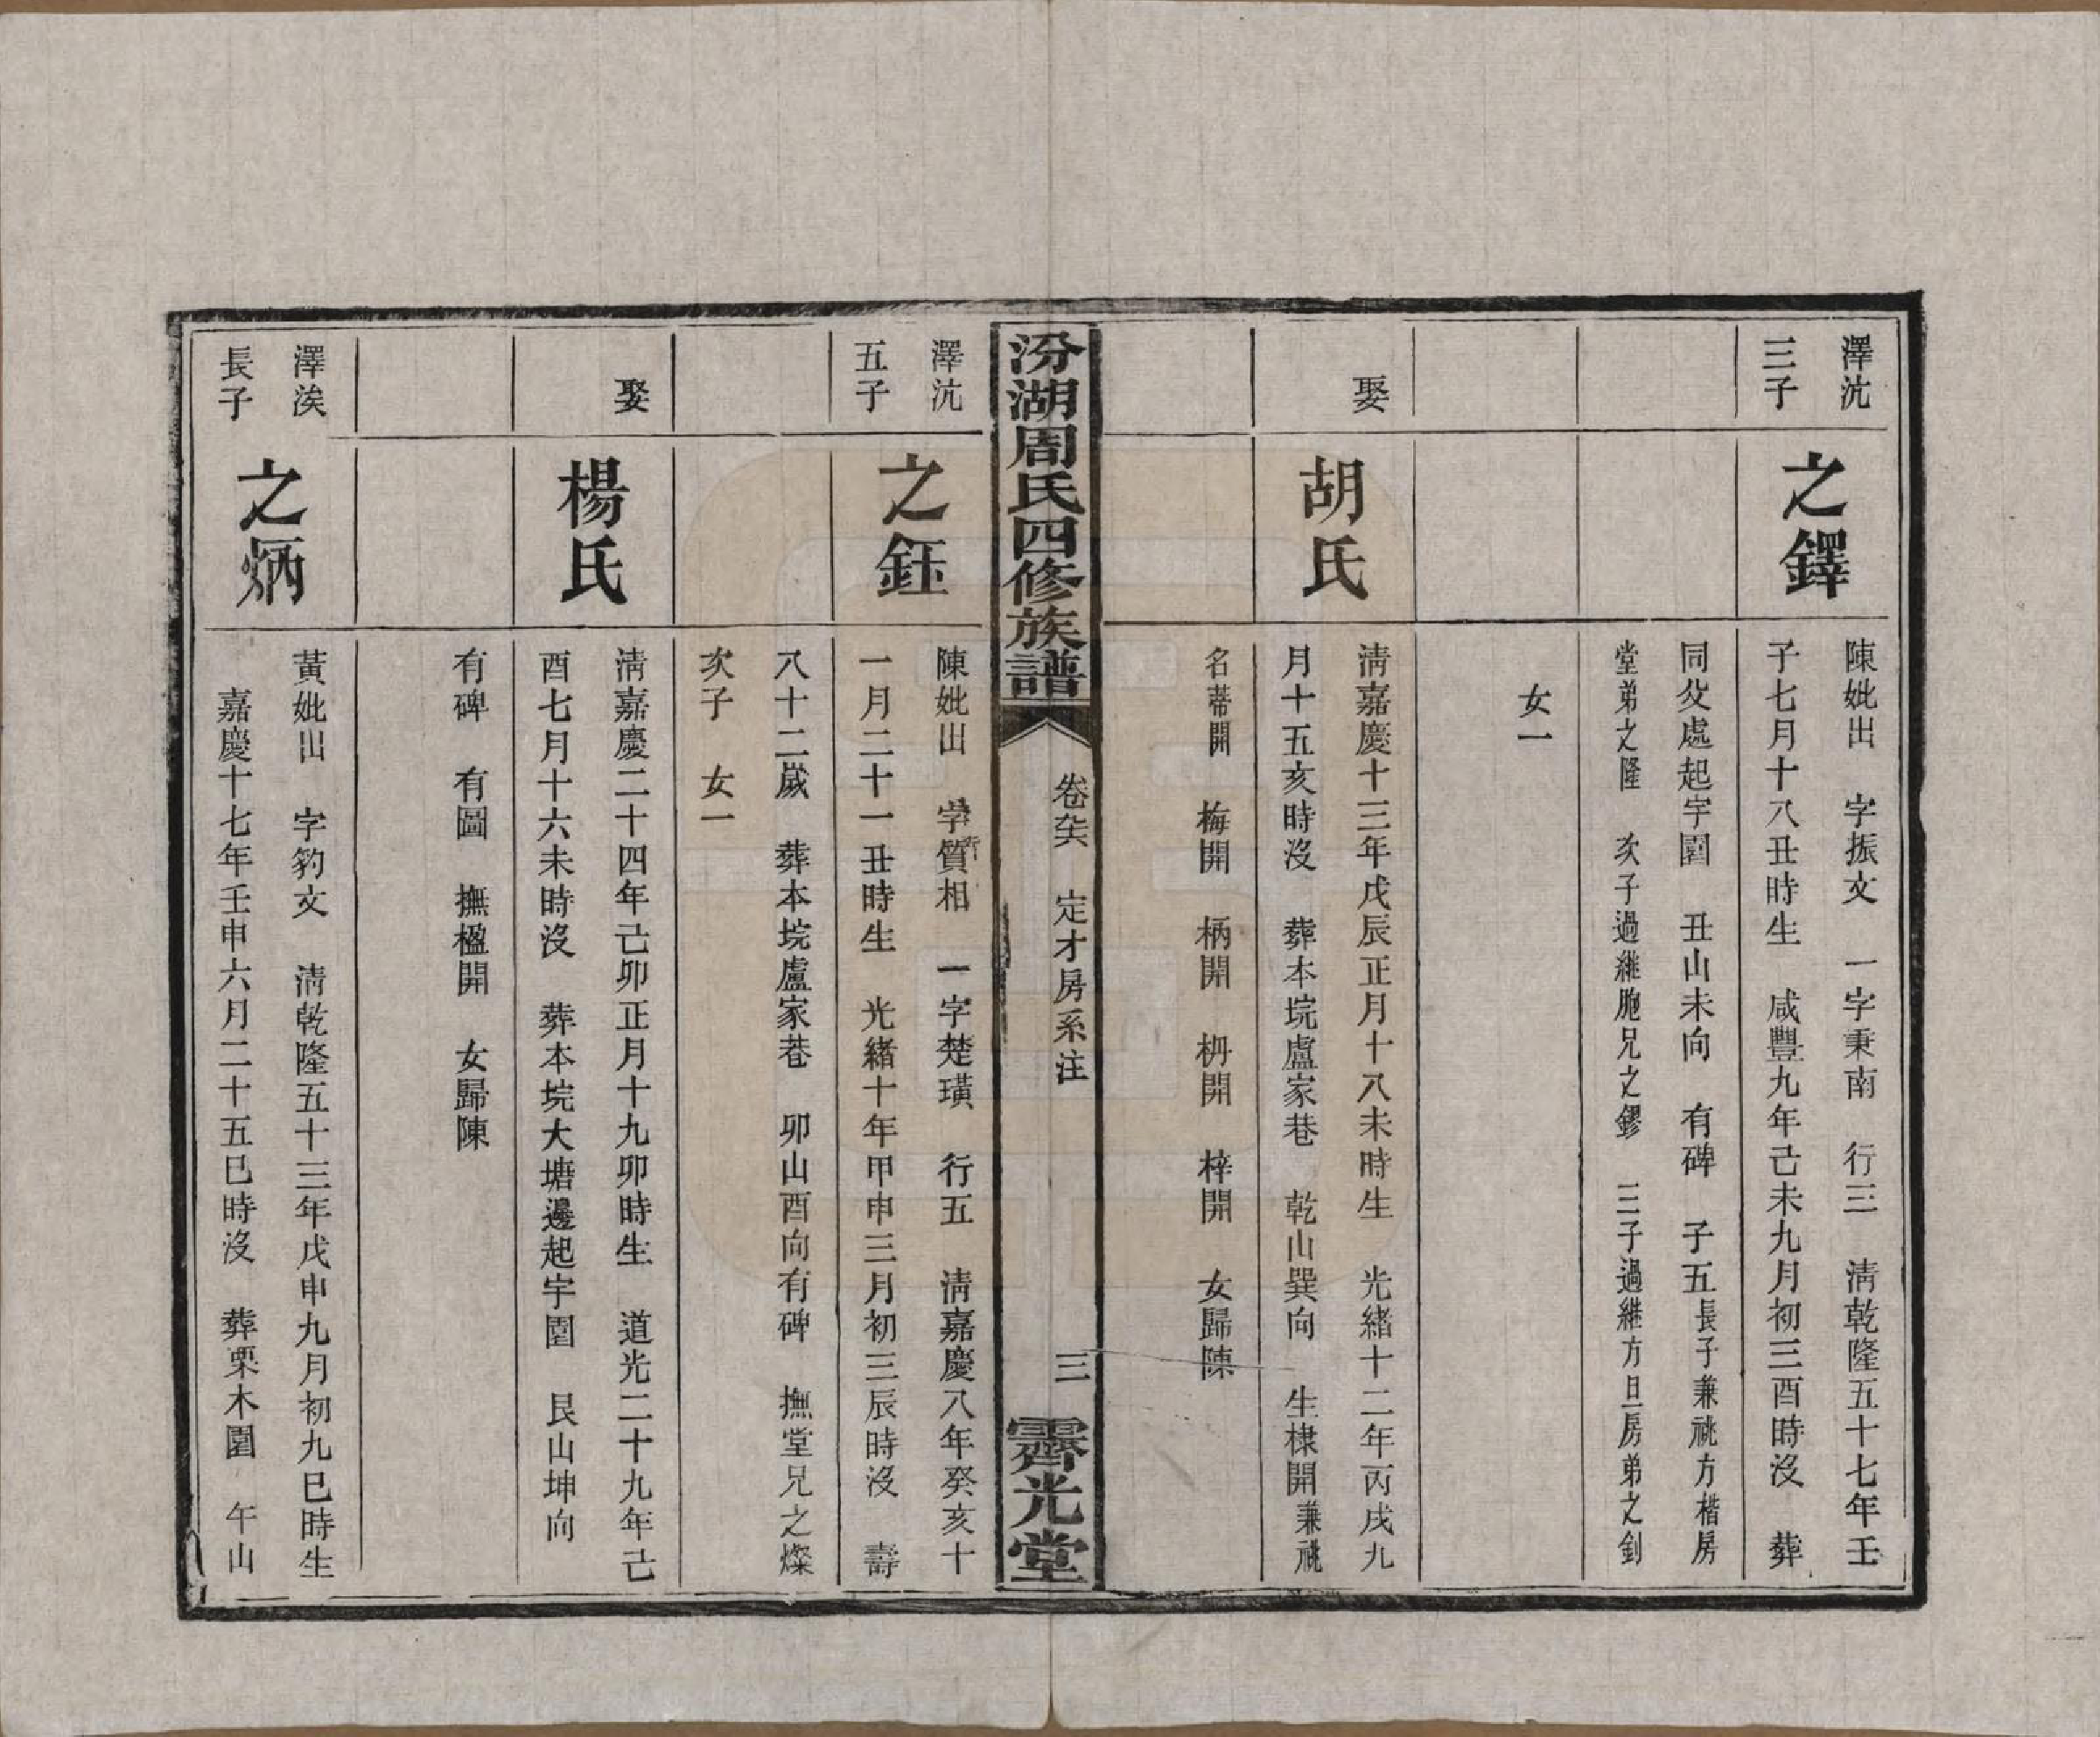 澤沆
三子
之鐸
陳妣出　字振文　一字秉南　行三　淸乾隆五十七年壬
子七月十八丑時生　咸豐九年己未九月初三酉時沒　葬
同父處起字圍　丑山未向　有碑　子五長子兼祧方楷房
堂弟之隆　次子過繼胞兄之鏐　三子過繼方旦房弟之釗
女一
娶
胡氏
淸嘉慶十三年戊辰正月十八未時生　光緒十二年丙戌九
月十五亥時沒　葬本垸盧家巷　乾山巽向　生棣開兼祧
名蔕開　梅開　柄開　栂開　梓開　女歸陳
汾湖周氏四修族譜
卷
定才房系注
三
霽光堂
澤沆
五子
之鈺
陳妣出　字質相　一字楚璜　行五　淸嘉慶八年癸亥十
一月二十一丑時生　光緒十年甲申三月初三辰時沒　壽
八十二歲　葬本垸盧家巷　卯山酉向有碑　撫堂兄之燦
次子　女一
娶
楊氏
淸嘉慶二十四年己卯正月十九卯時生　道光二十九年己
酉七月十六未時沒　葬本垸大塘邊起字圍　艮山坤向
有碑　有圖　撫楹開　女歸陳
澤涘
長子
之炳
黃妣出　字豹文　淸乾隆五十三年戊申九月初九巳時生
嘉慶十七年壬申六月二十五巳時沒　葬栗木園　午山